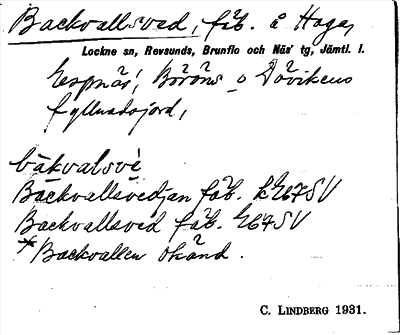 Backvallsved, fäb. å Haga,
Lockne sn, Revsunds, Brunflo och Näs' tg, Jämtl. l.
Espnäs', Böröns o Dövikens
fyllnadsjord,
bàkvalsvè
Backvallsvedjan fäb. k E67SV
Backvallsved fäb. E67SV
*Backvallen okänd.
C. LINDBERG 1931.